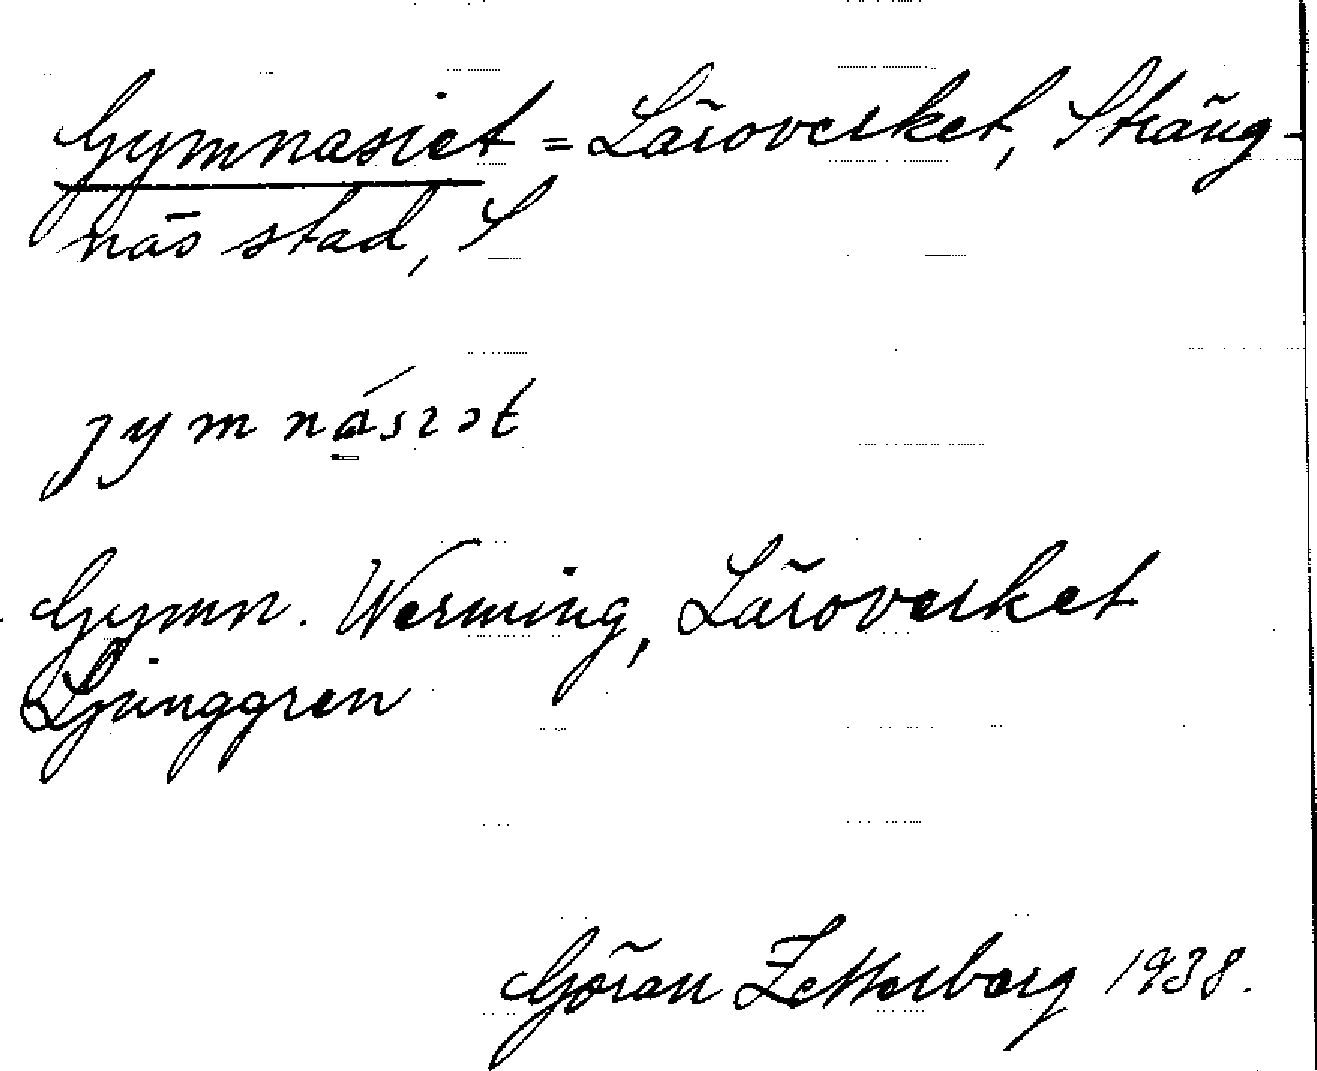 Gymnasiet = Läroverket, Sträng-
näs stad, S
jymnásıət
Gymn. Werming, Läroverket
Ljunggren
Göran Zetterberg 1938.